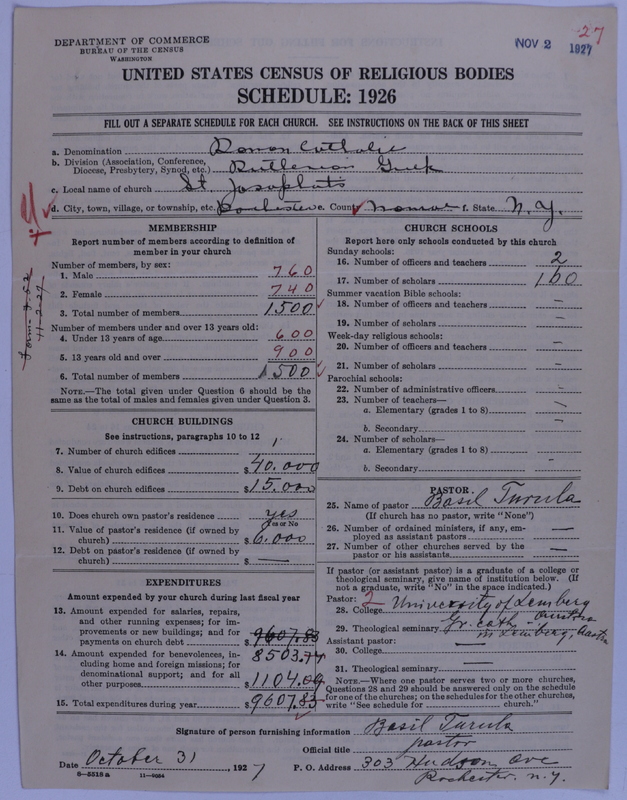 27
NOV 2 1927
DEPARTMENT OF COMMERCE
BUREAU OF THE CENSUS
WASHINGTON
UNITED STATES CENSUS OF RELIGIOUS BODIES
SCHEDULE: 1926
FILL OUT A SEPARATE SCHEDULE FOR EACH CHURCH. SEE INSTRUCTIONS ON THE BACK OF THIS SHEET
a. Denomination Roman Catholic
b. Division (Association, Conference, Diocese, Presbytery, Synod, etc.) Ruthenian Greek
c. Local name of church St. Josaphats
d. City, town, village, or township, etc. Rochester e. County Monroe f. State N.Y.
MEMBERSHIP
Report number of members according to definition of
member in your church
Number of members, by sex:
1. Male 760
2. Female 740
3. Total number of members 1500
Number of members under and over 13 years old:
4. Under 13 years of age 600
5. 13 years old and over 900
6. Total number of members 1500
NOTE.—The total given under Question 6 should be the
same as the total of males and females given under Question 3.
CHURCH BUILDINGS
See instructions, paragraphs 10 to 12
7. Number of church edifices 1
8. Value of church edifices $40.000
9. Debt on church edifices $15.000
10. Does church own pastor's residence yes
Yes or No
11. Value of pastor's residence (if owned by
church) $6.000
12. Debt on pastor's residence (if owned by
church) $ —
EXPENDITURES
Amount expended by your church during last fiscal year
13. Amount expended for salaries, repairs,
and other running expenses; for im-
provements or new buildings; and for
payments on church debt 9607.83
8503.74
14. Amount expended for benevolences, in-
cluding home and foreign missions; for
denominational support; and for all
other purposes $1104.09
15. Total expenditures during year $9607.83
CHURCH SCHOOLS
Report here only schools conducted by this church
Sunday schools:
16. Number of officers and teachers 2
17. Number of scholars 160
Summer vacation Bible schools:
18. Number of officers and teachers —
19. Number of scholars —
Week-day religious schools:
20. Number of officers and teachers —
21. Number of scholars —
Parochial schools:
22. Number of administrative officers —
23. Number of teachers—
a. Elementary (grades 1 to 8) —
b. Secondary —
24. Number of scholars—
a. Elementary (grades 1 to 8) —
b. Secondary —
PASTOR
25. Name of pastor Basil Turula
(If church has no pastor, write "None")
26. Number of ordained ministers, if any, em-
ployed as assistant pastors —
27. Number of other churches served by the
pastor or his assistants —
If pastor (or assistant pastor) is a graduate of a college or
theological seminary, give name of institution below. (If
not a graduate, write "No" in the space indicated.)
Pastor: 2
28. College University of Lemberg
Austria
29. Theological seminary Gr. Cath.
in Lemberg, Austria
Assistant pastor:
30. College —
31. Theological seminary —
NOTE.—Where one pastor serves two or more churches,
Questions 28 and 29 should be answered only on the schedule
for one of the churches; on the schedules for the other churches,
write "See schedule for church."
Signature of person furnishing information Basil Turula
Official title pastor
Date October 31, 1927 P. O. Address 303 Hudson Ave
Rochester. N.Y.
8—5518a 11—9054